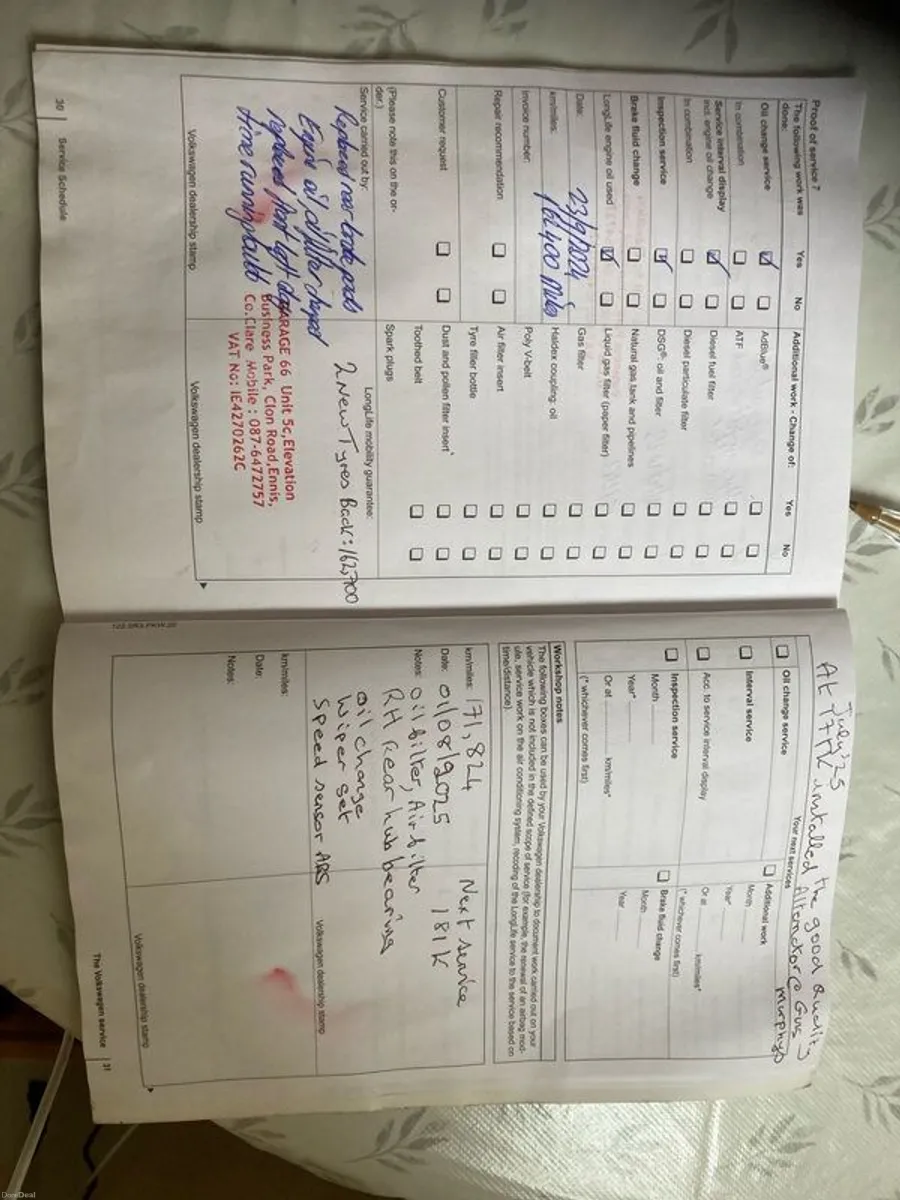 Proof of service 7
The following work was done:
Yes
No
Additional work - Change of:
Yes
No
Oil change service
AdBlue®
In combination
ATF
Service interval display
incl. engine oil change
Diesel fuel filter
In combination
Diesel particulate filter
Inspection service
DSG®: oil and filter
Brake fluid change
Natural gas tank and pipelines
LongLife engine oil used
Liquid gas filter (paper filter)
Date:
23/9/2024
Gas filter
km/miles:
161400 Miles
Haldex coupling: oil
Invoice number:
Poly V-belt
Repair recommendation
Air filter insert
Tyre filler bottle
Customer request
Dust and pollen filter insert*
(Please note this on the or-
der.)
Toothed belt
Spark plugs
Service carried out by:
Replaced rear brake pads
Engine oil, oil filter changed
replaced front left
running
LongLife mobility guarantee:
2 New Tyres Back: 162,700
GARAGE 66 Unit 5c, Elevation
Business Park, Clon Road, Ennis,
Co.Clare Mobile : 087-6472757
VAT No: IE4270262C
Volkswagen dealership stamp
Volkswagen dealership stamp
30 Service Schedule
July '25
At 171K installed the good quality
Alternator @ Gus
Murphys
Your next services
Oil change service
Additional work
Interval service
Acc. to service interval display
Month
Year*
Or at km/miles*
(* whichever comes first)
Inspection service
Month
Year*
Or at km/miles*
(* whichever comes first)
Brake fluid change
Month
Year
Workshop notes
The following boxes can be used by your Volkswagen dealership to document work carried out on your
vehicle which is not included in the defined scope of service (for example, the renewal of an airbag mod-
ule, service work on the air conditioning system, recoding of the LongLife service to the service based on
time/distance).
km/miles: 171,824
Next service
181K
Date: 01/08/2025
Notes: oil filter, Air filter
RH Rear hub bearing
oil change
Wiper set
Speed sensor ABS
Volkswagen dealership stamp
km/miles:
Date:
Notes:
Volkswagen dealership stamp
The Volkswagen service 31
DoneDeal